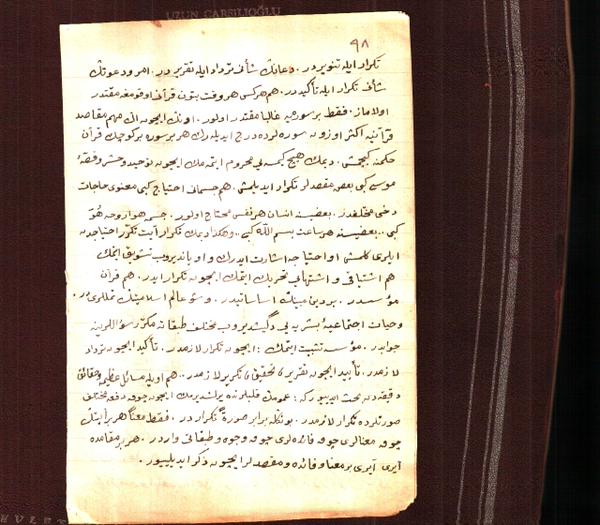 UZUN ÇARŞILIOĞLU
٩٨
تكرار ايله تنويردر. دعانڭ شأنى ترداد ايله تقريردر. امر و دعوتڭ
شأنى تكرار ايله تأكيددر. هم هركس هر وقت بتون قرآنى اوقومغه مقتدر
اولاماز. فقط بر سوره‌يه غالبا مقتدر اولور. اونڭ ايچون اڭ مهم مقاصد
قرآنيه اكثر اوزون سوره‌لرده درج ايديله‌رك هر بر سوره بر كوچك قرآن
حكمنه كچمش. ديمك هيچ كيمسه‌يى محروم ايتمه‌مك ايچون توحيد و حشر و قصّهٔ
موسى كبى بعض مقصدلر تكرار ايديلمش. هم جسمانى احتياج كبى معنوى حاجات
دخى مختلفدر. بعضيسنه انسان هر نفس محتاج اولور. جسمه هوا، روحه هُوَ
كبى.. بعضيسنه هر ساعت بسم اللّٰه كبى.. وهكذا ديمك تكرار آيت تكرّر احتياجدن
ايلرى كلمش. او احتياجه اشارت ايدرك و اوياندیروب تشويق ايتمك
هم اشتياقى و اشتهايى تحريك ايتمك ايچون تكرار ايدر. هم قرآن
مؤسسدر. بر دين مبينڭ اساساتيدر. و شو عالم اسلاميتڭ تمللريدر.
و حيات اجتماعيهٔ بشريه‌يى دگيشديروب مختلف طبقاته مكرّر سؤاللرينه
جوابدر. مؤسسه تثبيت ايتمك ايچون تكرار لازمدر. تأكيد ايچون ترداد
لازمدر. تأييد ايچون تقرير، تحقيق، تكرير لازمدر.. هم اويله مسائل عظيمه و حقائق
دقيقه‌دن بحث ايدييور كه: عمومڭ قلبلرنده يرلشديرمك ايچون چوق دفعه مختلف
صورتلرده تكرار لازمدر. بونڭله برابر صورةً تكراردر. فقط معناً هر بر آيتڭ
چوق معنالرى چوق فائده‌لرى چوق وجوه و طبقاتى واردر. هر بر مقامده
آيرى آيرى بر معنا و فائده و مقصدلر ايچون ذكر ايديلييور.